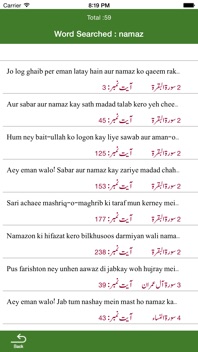 Carrier 8:19 PM
Total :59
Word Searched : namaz
Jo log ghaib per eman latay hain aur namaz ko qaeem rak..
2 سورۃ البقرۃ آیت نمبر: 3
Aur sabar aur namaz kay sath madad talab kero yeh chee..
2 سورۃ البقرۃ آیت نمبر: 45
Hum ney bait-ullah ko logon kay liye sawab aur aman-o..
2 سورۃ البقرۃ آیت نمبر: 125
Aey eman walo! Sabar aur namaz kay zariye madad chah..
2 سورۃ البقرۃ آیت نمبر: 153
Sari achaee mashriq-o-maghrib ki taraf mun kerney mei..
2 سورۃ البقرۃ آیت نمبر: 177
Namazon ki hifazat kero bilkhusoos darmiyan wali nama..
2 سورۃ البقرۃ آیت نمبر: 238
Pus farishton ney unhen aawaz di jabkay woh hujray mei..
3 سورۃ آل عمران آیت نمبر: 39
Aey eman walo! Jab tum nashay mein mast ho namaz ka..
4 سورۃ النساء آیت نمبر: 43
Back